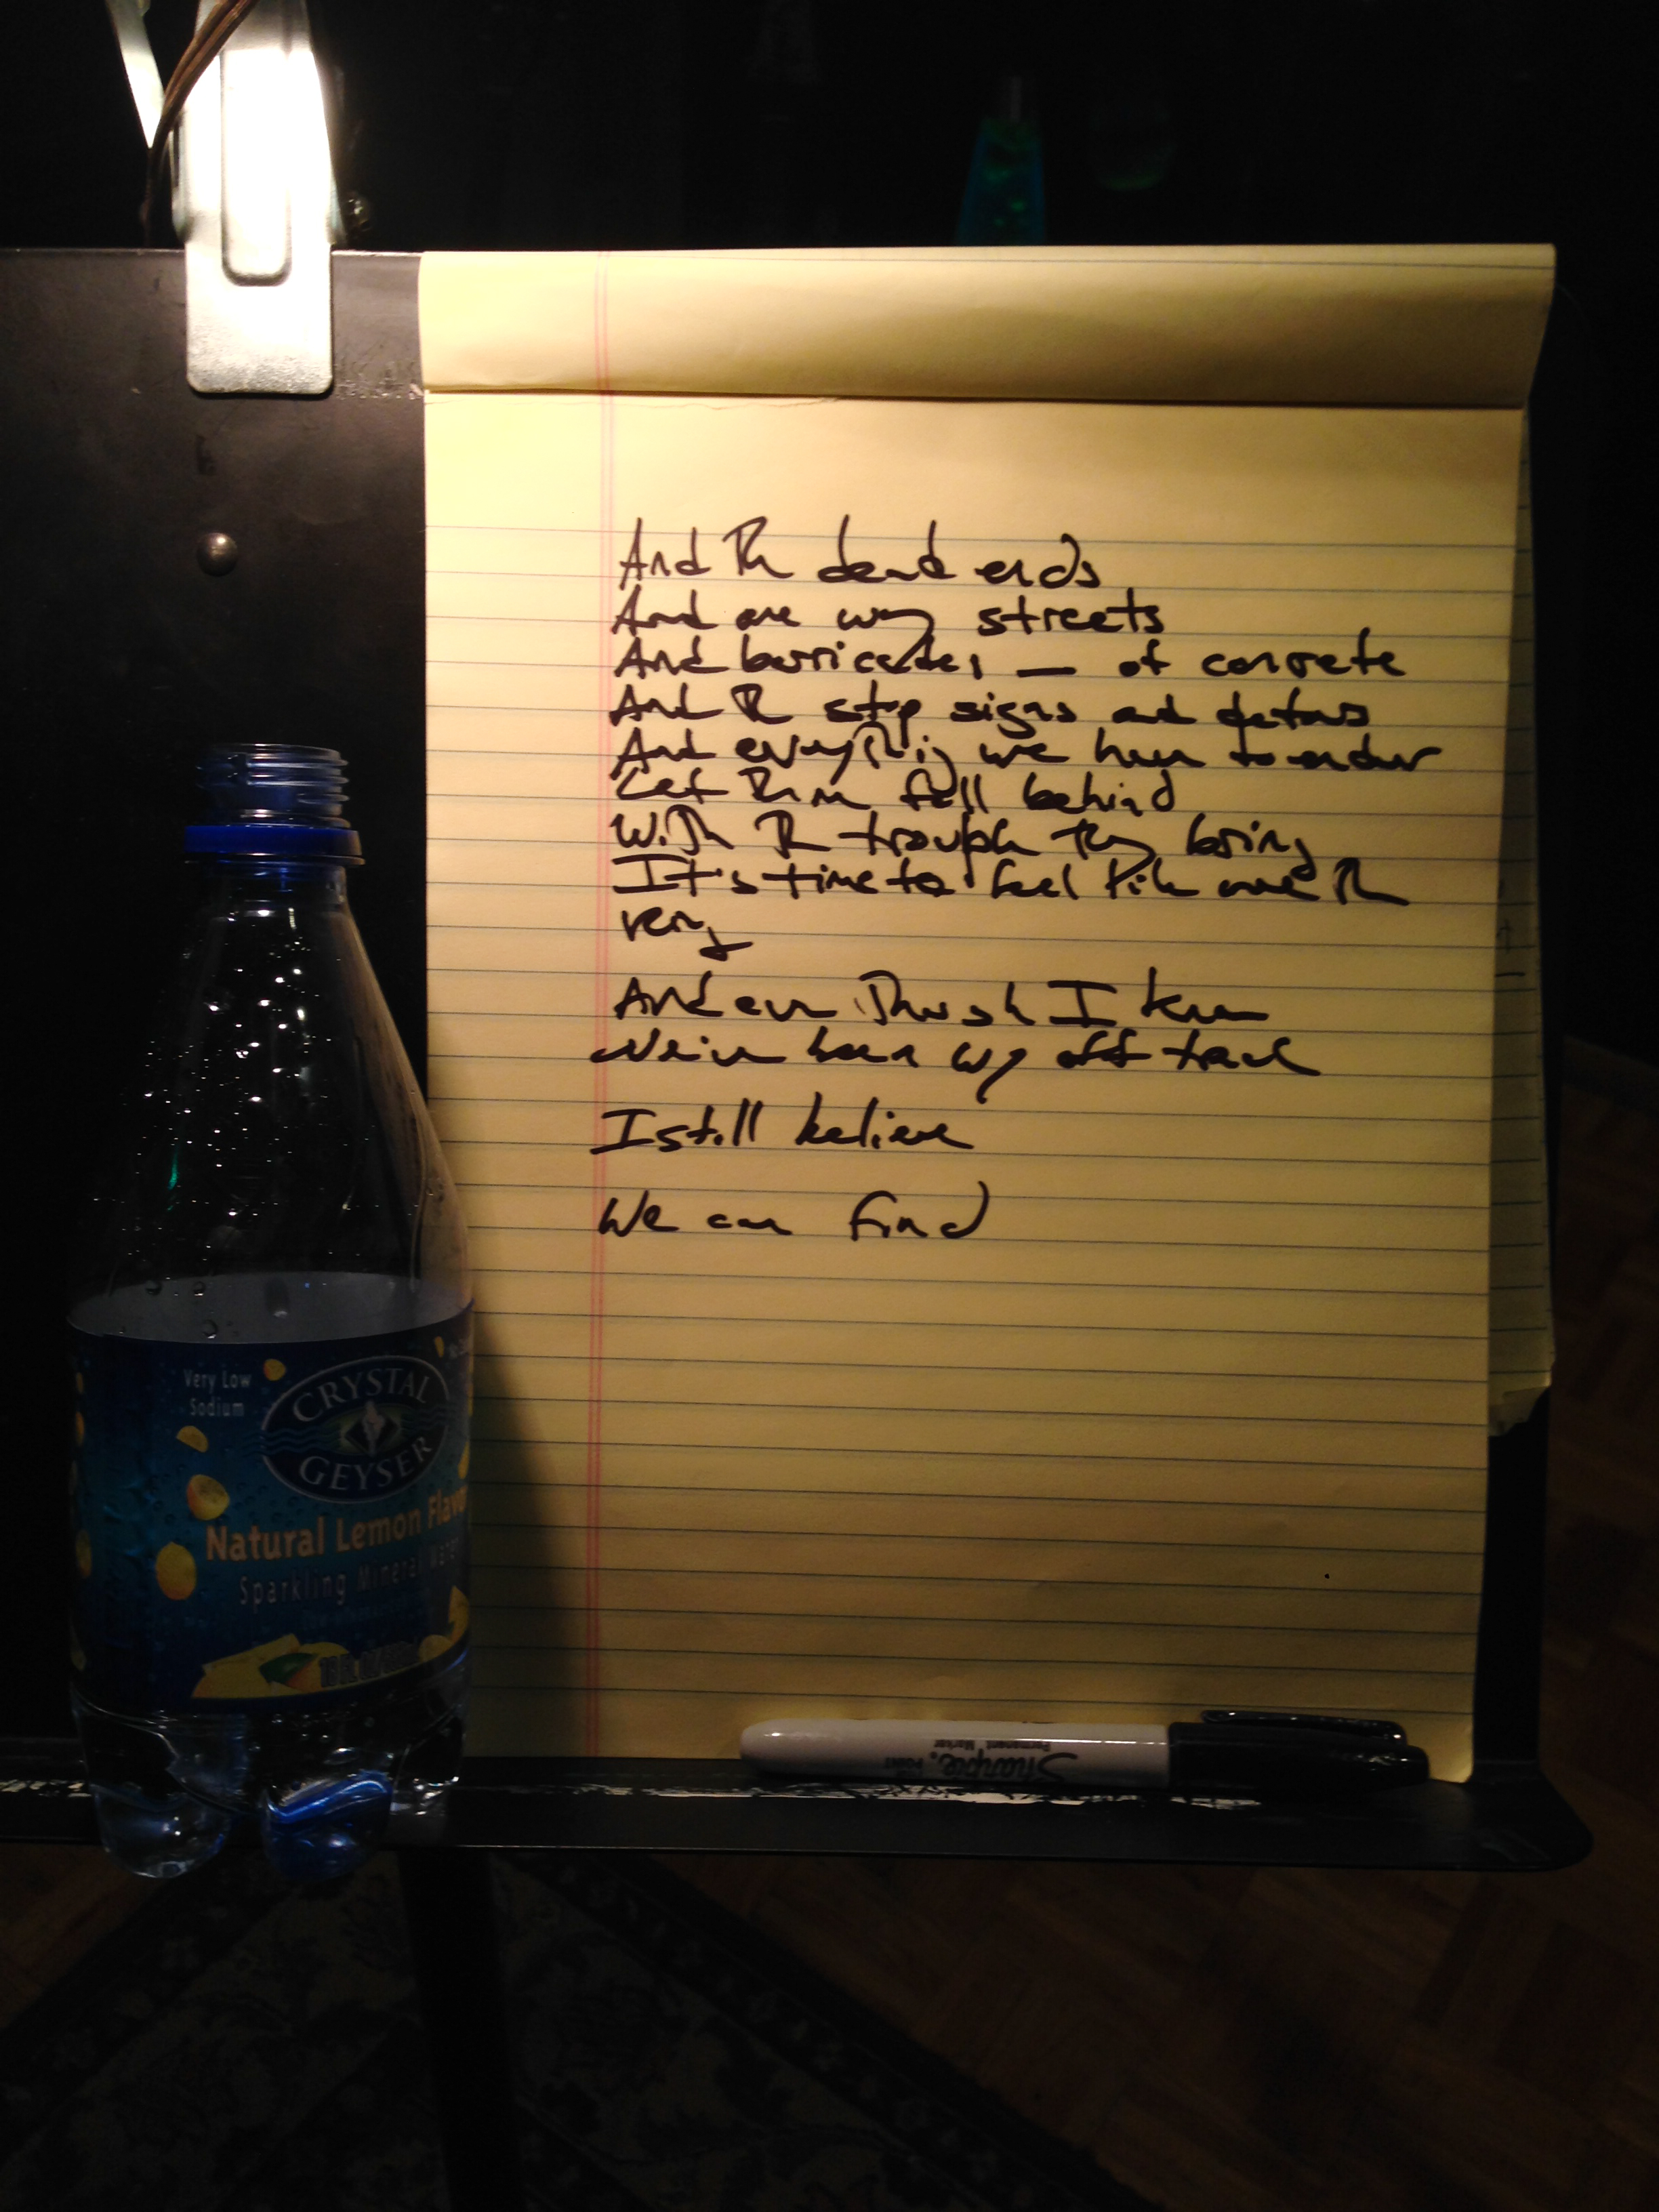 And the dead ends
And one way streets
And barricades — of concrete
And the stop signs and detours
And everything we have to endure
Let them fall behind
With the trouble they bring
It's time to feel like we're the
very
And even though I know
We've been way off track
I still believe
We can find
Very Low
Sodium
CRYSTAL
GEYSER
Natural Lemon Flavor
Sparkling Mineral Water
Sharpie
Permanent Marker